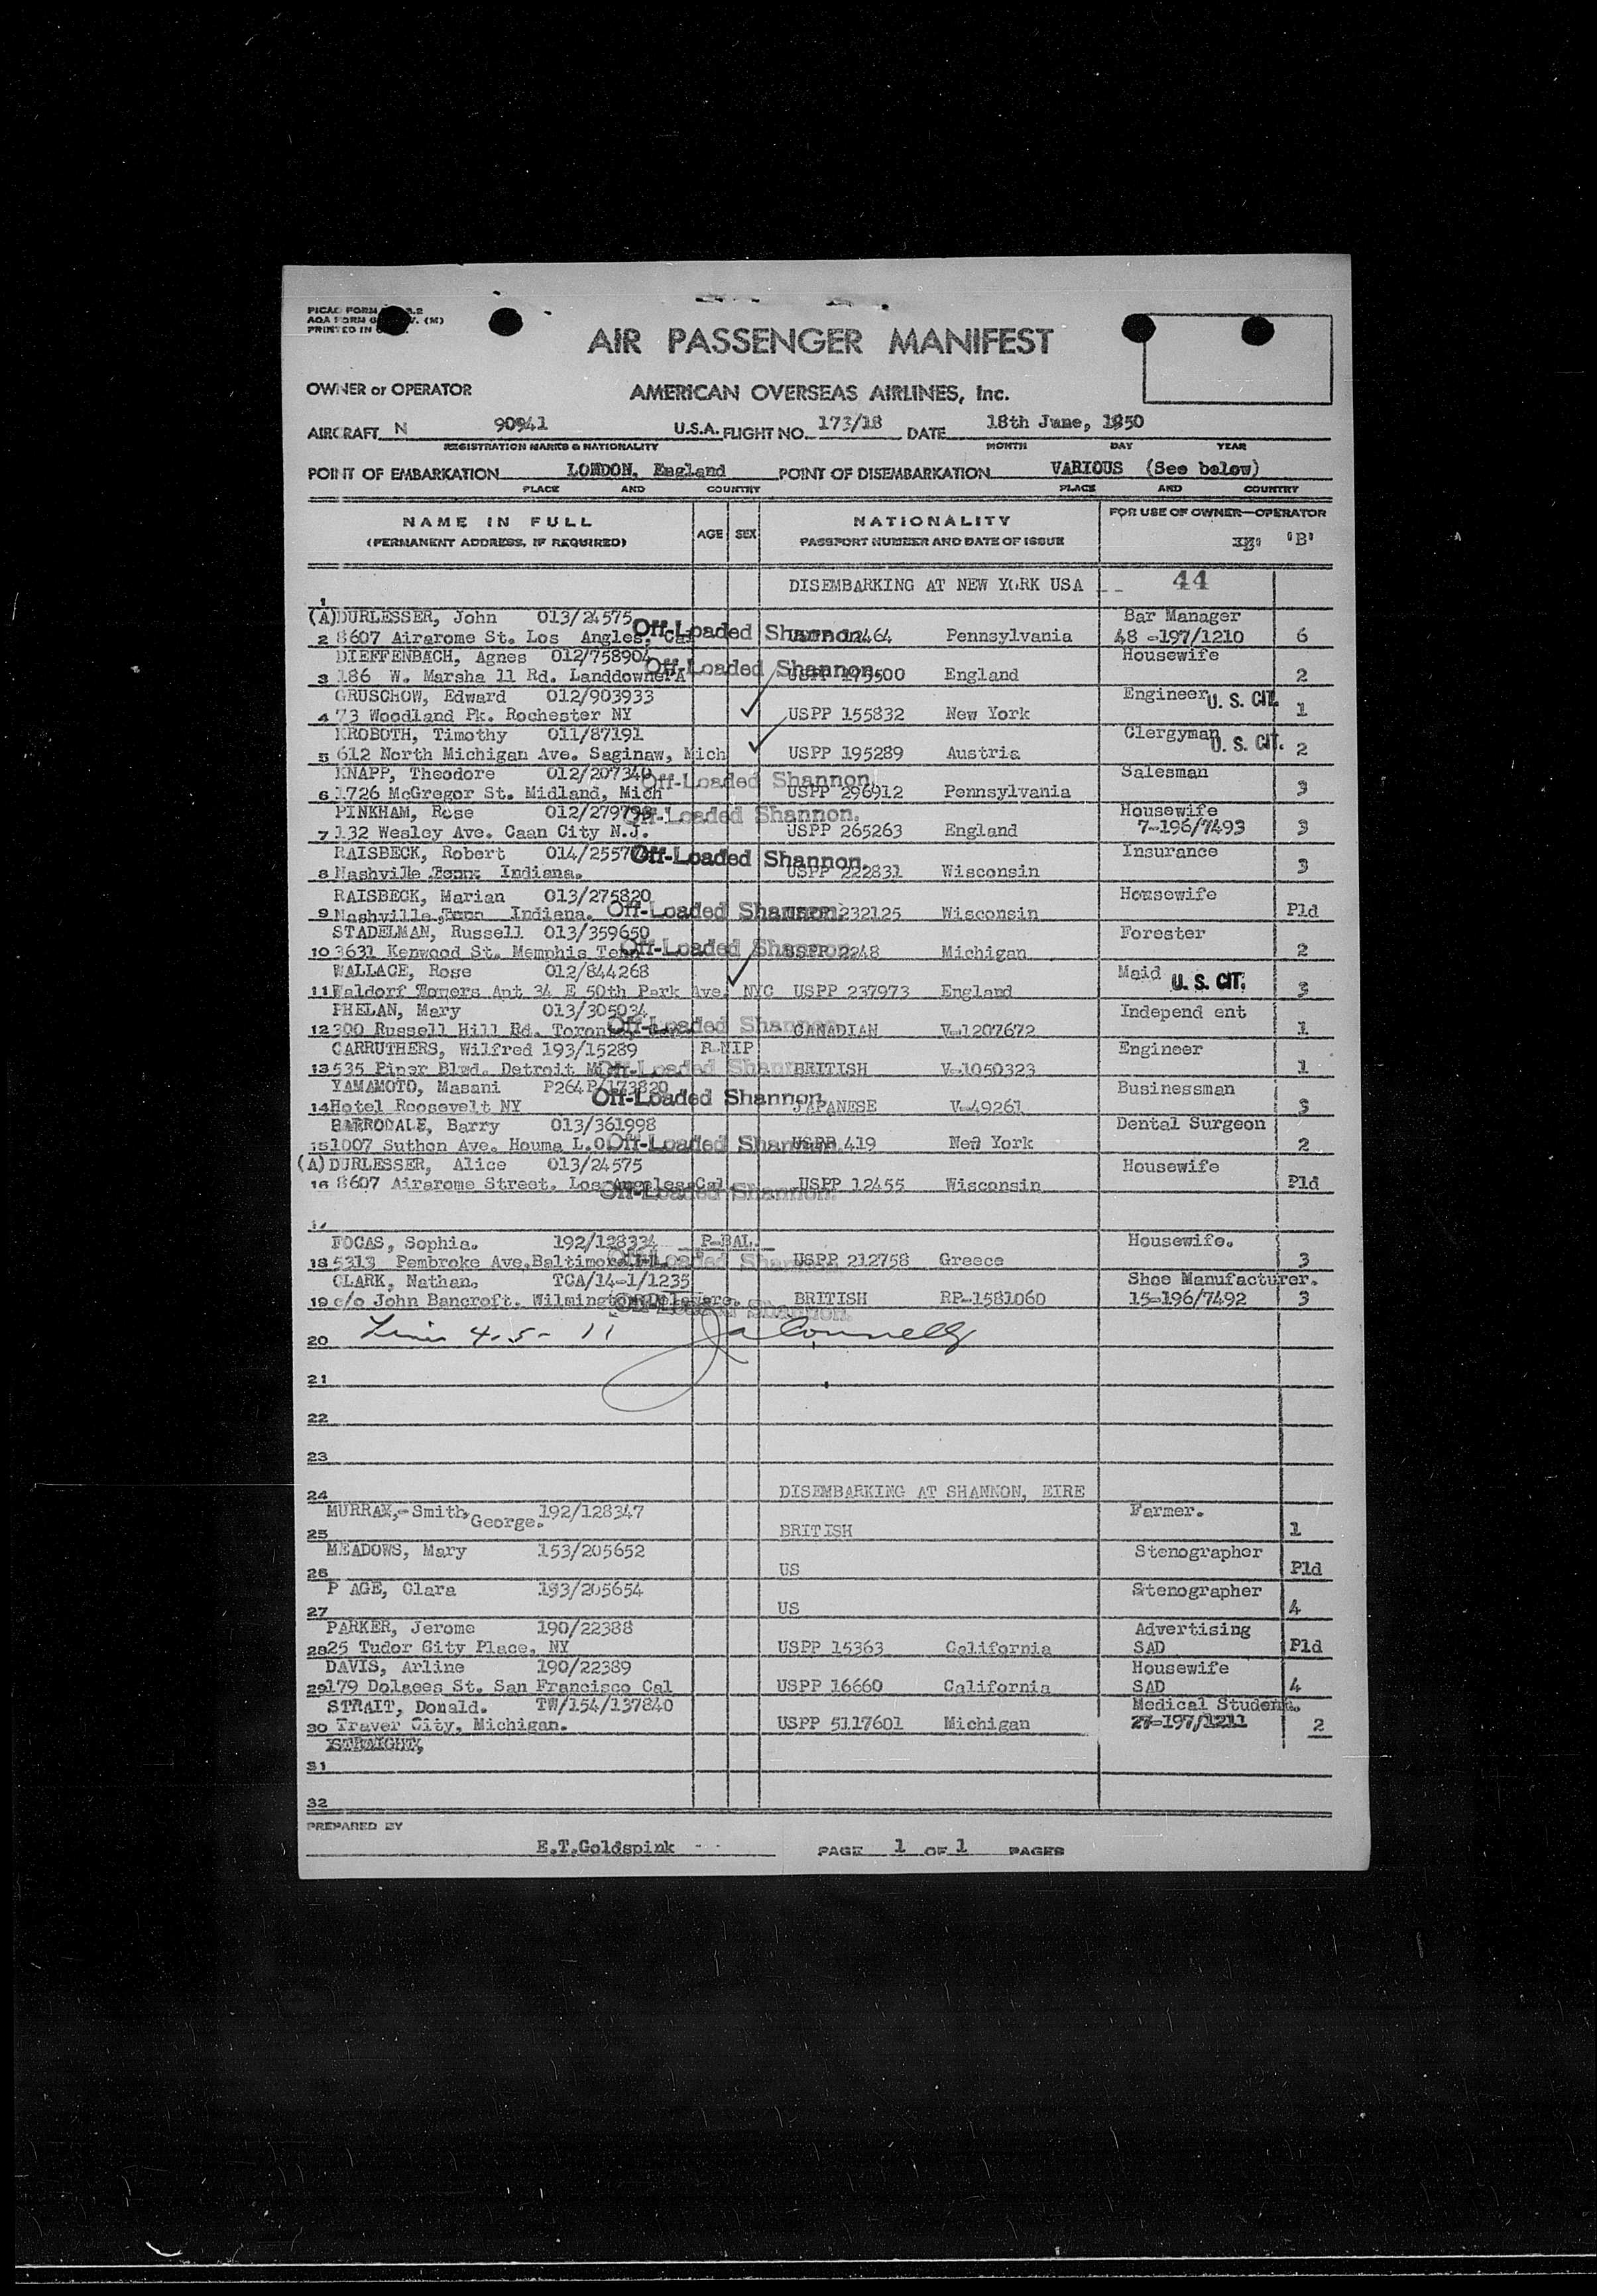 PICAO FORM
AOA FORM (M)
PRINTED IN
AIR PASSENGER MANIFEST
OWNER or OPERATOR AMERICAN OVERSEAS AIRLINES, Inc.
AIRCRAFT N 90941 U.S.A. FLIGHT NO. 173/18 DATE 18th June, 1950
REGISTRATION MARKS & NATIONALITY MONTH DAY YEAR
POINT OF EMBARKATION LONDON, England POINT OF DISEMBARKATION VARIOUS (See below)
PLACE AND COUNTRY PLACE AND COUNTRY
NAME IN FULL AGE SEX NATIONALITY FOR USE OF OWNER—OPERATOR
(PERMANENT ADDRESS, IF REQUIRED) PASSPORT NUMBER AND DATE OF ISSUE "B"
DISEMBARKING AT NEW YORK USA 44
1
(A)DURLESSER, John 013/24575 Off-Loaded Shannon. Bar Manager
2 8607 Airarome St. Los Angles, Cal 12464 Pennsylvania 48 -197/1210 6
DIEFFENBACH, Agnes 012/758904 Off-Loaded Shannon. Housewife
3 186 W. Marsha ll Rd. LanddownePA USPP 175500 England 2
GRUSCHOW, Edward 012/903933 Engineer U. S. CIT.
4 73 Woodland Pk. Rochester NY USPP 155832 New York 1
KROBOTH, Timothy 011/87191 Clergyman U. S. CIT.
5 612 North Michigan Ave. Saginaw, Mich USPP 195289 Austria 2
KNAPP, Theodore 012/207340 Off-Loaded Shannon. Salesman
6 1726 McGregor St. Midland, Mich USPP 296912 Pennsylvania 3
PINKHAM, Rose 012/279798 Off-Loaded Shannon. Housewife
7 132 Wesley Ave. Caan City N.J. USPP 265263 England 7-196/7493 3
RAISBECK, Robert 014/2557 Off-Loaded Shannon. Insurance
8 Nashville Indiana. USPP 222831 Wisconsin 3
RAISBECK, Marian 013/275820 Housewife
9 Nashville Indiana. Off-Loaded Shannon. USPP 232125 Wisconsin Pld
STADELMAN, Russell 013/359650 Forester
10 3631 Kenwood St. Memphis Tenn Off-Loaded Shannon. USPP 2248 Michigan 2
WALLACE, Rose 012/844268 Maid U. S. CIT.
11 Waldorf Towers Apt 34 E 50th Park Ave. NYC USPP 237973 England 3
PHELAN, Mary 013/305034 Independ ent
12 300 Russell Hill Rd. Toronto, Off-Loaded Shannon. CANADIAN V-1207672 1
CARRUTHERS, Wilfred 193/15289 R NIP Engineer
13 535 Piper Blvd. Detroit Off-Loaded Shannon. BRITISH V-1050323 1
YAMAMOTO, Masani P264P/173820 Businessman
14 Hotel Roosevelt NY Off-Loaded Shannon. JAPANESE V-49261 3
BARRODALE, Barry 013/361998 Dental Surgeon
15 1007 Suthon Ave. Houma L.O. Off-Loaded Shannon. USPP 419 New York 2
(A)DURLESSER, Alice 013/24575 Housewife
16 8607 Airarome Street. Los Angeles Cal Off-Loaded Shannon. USPP 12455 Wisconsin Pld
17
FOCAS, Sophia. 192/128334 P-BAL. Housewife.
18 5313 Pembroke Ave,Baltimore Off-Loaded Shannon. USPP 212758 Greece 3
CLARK, Nathan. TCA/14-1/1235 Shoe Manufacturer.
19 c/o John Bancroft. Wilmington Off-Loaded Shannon. BRITISH RP-1581060 15-196/7492 3
20 4-5- 11 Connelly
21
22
23
24 DISEMBARKING AT SHANNON, EIRE
MURRAY,-Smith, George. 192/128347 Farmer.
25 BRITISH 1
MEADOWS, Mary 153/205652 Stenographer
26 US Pld
P AGE, Clara 193/205654 Stenographer
27 US 4
PARKER, Jerome 190/22388 Advertising
28 25 Tudor City Place. NY USPP 15363 California SAD Pld
DAVIS, Arline 190/22389 Housewife
29 179 Dolsees St. San Francisco Cal USPP 16660 California SAD 4
STRAIT, Donald. TW/154/137840 Medical Student.
30 Traver City, Michigan. USPP 5117601 Michigan 27-197/1211 2
STRAIGHT,
31
32
PREPARED BY
E.T.Goldspink PAGE 1 OF 1 PAGES